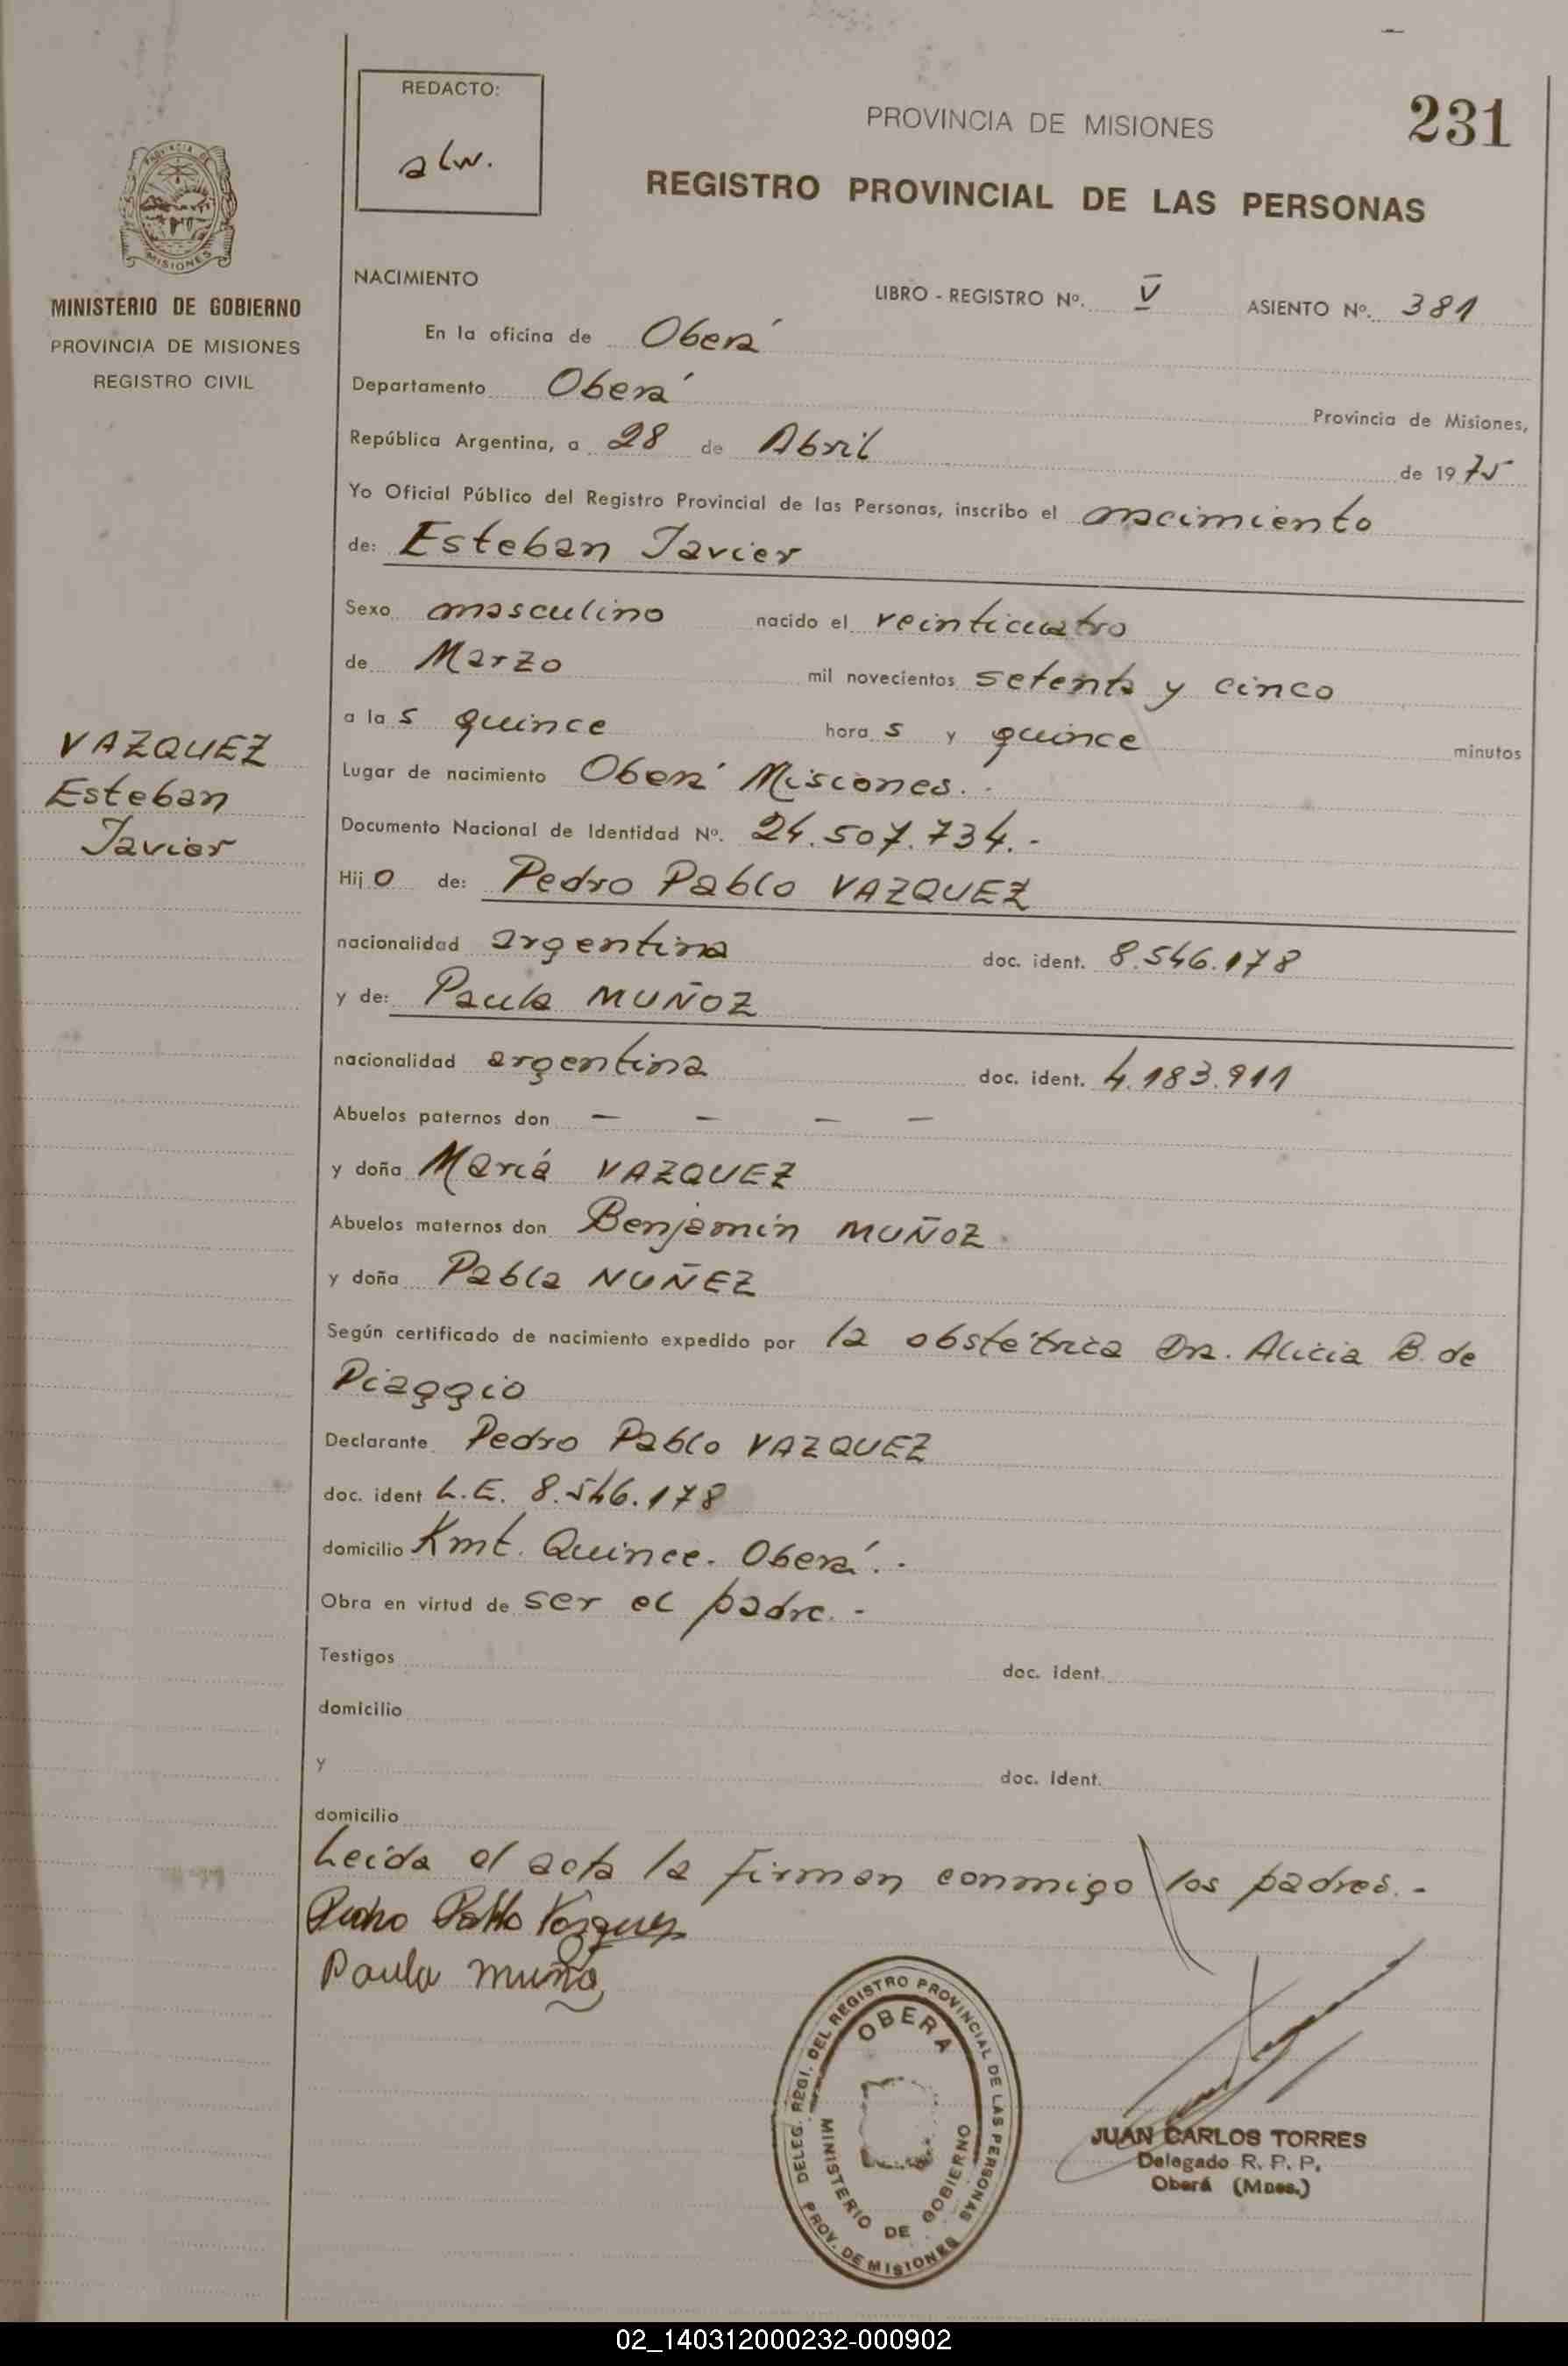 REDACTO:
alw.
PROVINCIA DE MISIONES
231
REGISTRO PROVINCIAL DE LAS PERSONAS
PROVINCIA DE
MISIONES
MINISTERIO DE GOBIERNO
PROVINCIA DE MISIONES
REGISTRO CIVIL
VAZQUEZ
Esteban
Javier
NACIMIENTO
LIBRO - REGISTRO Nº. V ASIENTO Nº. 381
En la oficina de Oberá
Departamento Oberá Provincia de Misiones,
República Argentina, a 28 de Abril de 1975
Yo Oficial Público del Registro Provincial de las Personas, inscribo el nacimiento
de: Esteban Javier
Sexo masculino nacido el veinticuatro
de Marzo mil novecientos setenta y cinco
a las quince horas y quince minutos
Lugar de nacimiento Oberá Misiones.-
Documento Nacional de Identidad Nº. 24.507.734.-
Hijo de: Pedro Pablo VAZQUEZ
nacionalidad argentina doc. ident. 8.546.178
y de: Paula MUÑOZ
nacionalidad argentina doc. ident. 4.183.911
Abuelos paternos don — — — —
y doña Mariá VAZQUEZ
Abuelos maternos don Benjamín MUÑOZ
y doña Pabla NUÑEZ
Según certificado de nacimiento expedido por la obstétrica Dra. Alicia B. de
Piaggio
Declarante Pedro Pablo VAZQUEZ
doc. ident L.E. 8.546.178
domicilio Kmt. Quince. Oberá.-
Obra en virtud de ser el padre.-
Testigos doc. ident.
domicilio
y doc. Ident.
domicilio
Leída el acta la firman conmigo los padres.-
Pedro Pablo Vazquez
Paula Muñoz
DELEG. REGI. DEL REGISTRO PROVINCIAL DE LAS PERSONAS
OBERA
MINISTERIO DE GOBIERNO
PROV. DE MISIONES
JUAN CARLOS TORRES
Delegado R. P. P.
Oberá (Mnes.)
02_140312000232-000902